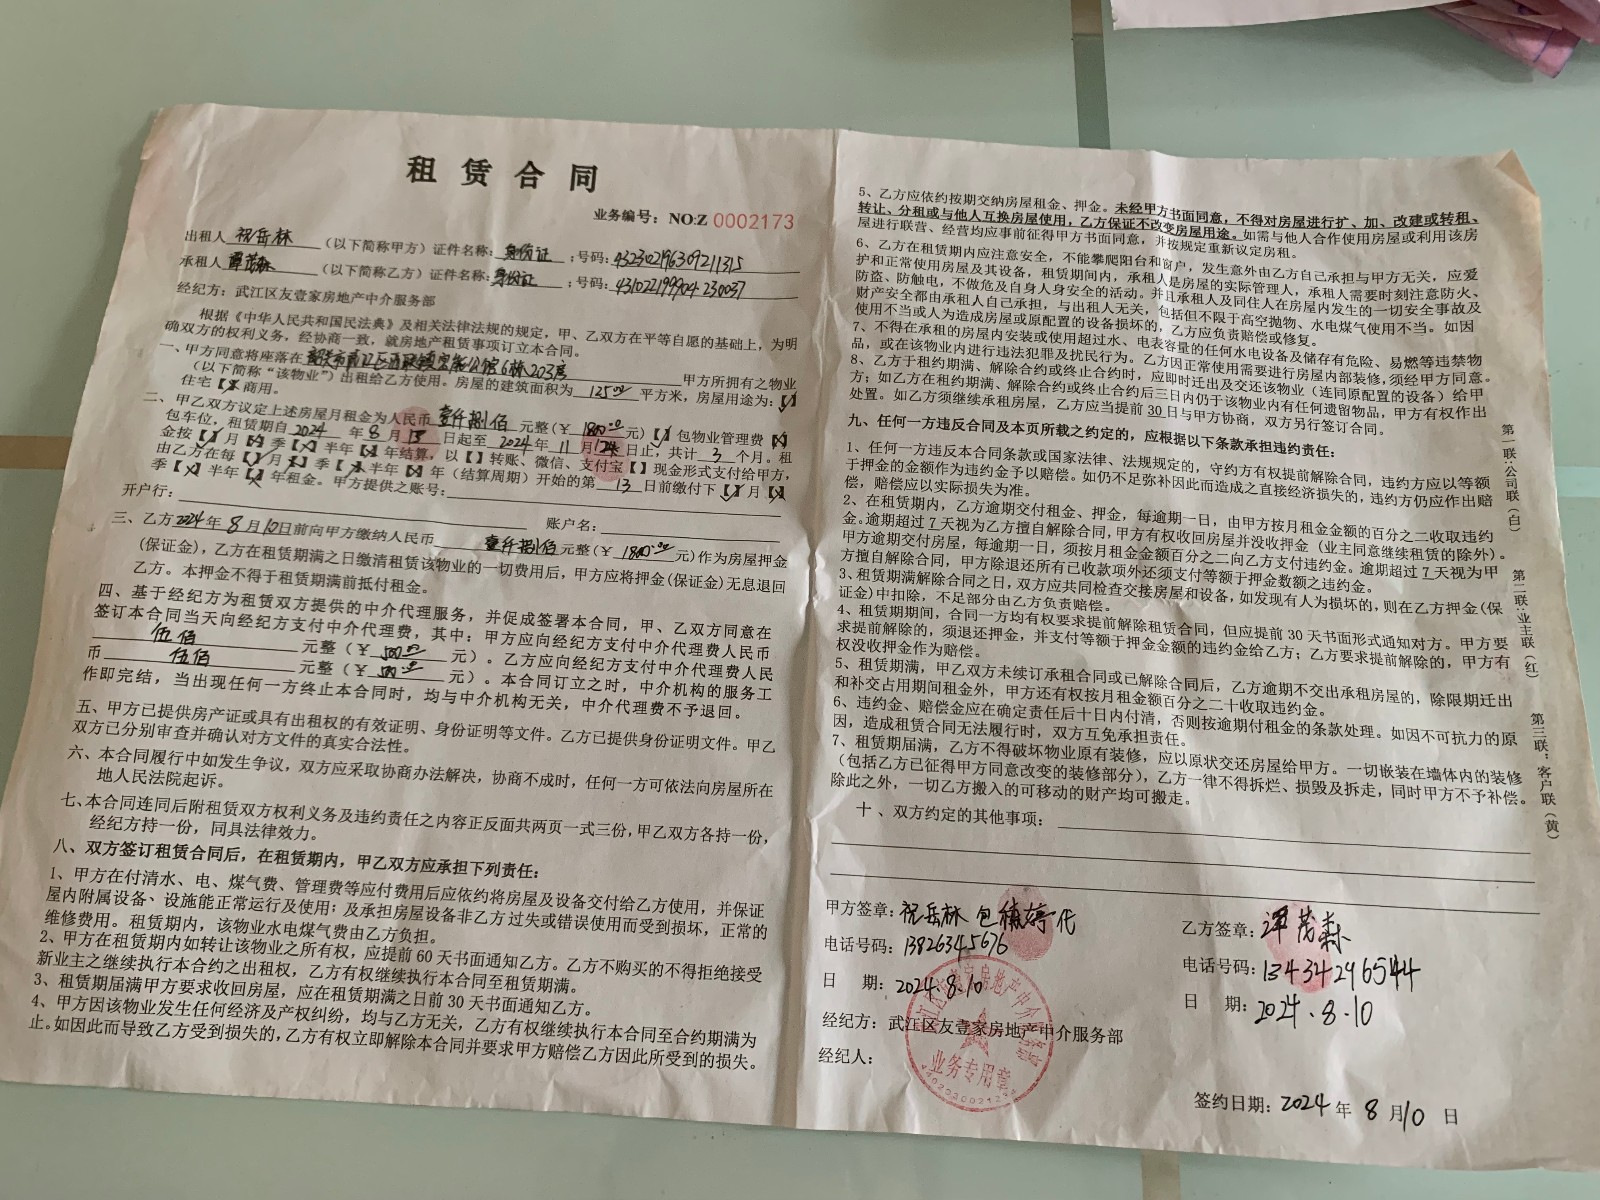 租赁合同
业务编号：NO:Z 0002173
出租人 祝岳林 （以下简称甲方）证件名称：身份证 ；号码：432302196309211315
承租人 （以下简称乙方）证件名称：身份证 ；号码：431022199904230037
经纪方：武江区友壹家房地产中介服务部
根据《中华人民共和国民法典》及相关法律法规的规定，甲、乙双方在平等自愿的基础上，为明
确双方的权利义务，经协商一致，就房地产租赁事项订立本合同。
一、甲方同意将座落在 6栋203房 甲方所拥有之物业
（以下简称“该物业”）出租给乙方使用。房屋的建筑面积为 125.00 平方米，房屋用途为：【✓】
住宅【×】商用。
二、甲乙双方议定上述房屋月租金为人民币 壹仟捌佰 元整（￥1800.00元）【✓】包物业管理费【×】
包车位，租赁期自2024 年 8 月 13 日起至 2024年 11 月 12 日止，共计 3 个月。租
金按【✓】月【×】季【×】半年【×】年结算，以【 】转账、微信、支付宝【 】现金形式支付给甲方，
由乙方在每【✓】月【×】季【×】半年【×】年（结算周期）开始的第 13 日前缴付下【✓】月【×】
季【×】半年【×】年租金。甲方提供之账号：
开户行： 账户名：
三、乙方2024年 8 月10日前向甲方缴纳人民币 壹仟捌佰 元整（￥1800.00元）作为房屋押金
（保证金），乙方在租赁期满之日缴清租赁该物业的一切费用后，甲方应将押金(保证金)无息退回
乙方。本押金不得于租赁期满前抵付租金。
四、基于经纪方为租赁双方提供的中介代理服务，并促成签署本合同，甲、乙双方同意在
签订本合同当天向经纪方支付中介代理费，其中：甲方应向经纪方支付中介代理费人民币
伍佰 元整（￥500.00 元）。乙方应向经纪方支付中介代理费人民
币 伍佰 元整（￥500.00 元）。本合同订立之时，中介机构的服务工
作即完结，当出现任何一方终止本合同时，均与中介机构无关，中介代理费不予退回。
五、甲方已提供房产证或具有出租权的有效证明、身份证明等文件。乙方已提供身份证明文件。甲乙
双方已分别审查并确认对方文件的真实合法性。
六、本合同履行中如发生争议，双方应采取协商办法解决，协商不成时，任何一方可依法向房屋所在
地人民法院起诉。
七、本合同连同后附租赁双方权利义务及违约责任之内容正反面共两页一式三份，甲乙双方各持一份，
经纪方持一份，同具法律效力。
八、双方签订租赁合同后，在租赁期内，甲乙双方应承担下列责任：
1、甲方在付清水、电、煤气费、管理费等应付费用后应依约将房屋及设备交付给乙方使用，并保证
屋内附属设备、设施能正常运行及使用；及承担房屋设备非乙方过失或错误使用而受到损坏，正常的
维修费用。租赁期内，该物业水电煤气费由乙方负担。
2、甲方在租赁期内如转让该物业之所有权，应提前60天书面通知乙方。乙方不购买的不得拒绝接受
新业主之继续执行本合约之出租权，乙方有权继续执行本合同至租赁期满。
3、租赁期届满甲方要求收回房屋，应在租赁期满之日前30天书面通知乙方。
4、甲方因该物业发生任何经济及产权纠纷，均与乙方无关，乙方有权继续执行本合同至合约期满为
止。如因此而导致乙方受到损失的，乙方有权立即解除本合同并要求甲方赔偿乙方因此所受到的损失。
5、乙方应依约按期交纳房屋租金、押金。未经甲方书面同意，不得对房屋进行扩、加、改建或转租、
转让、分租或与他人互换房屋使用，乙方保证不改变房屋用途。如需与他人合作使用房屋或利用该房
屋进行联营、经营均应事前征得甲方书面同意，并按规定重新议定房租。
6、乙方在租赁期内应注意安全，不能攀爬阳台和窗户，发生意外由乙方自己承担与甲方无关，应爱
护和正常使用房屋及其设备，租赁期间内，承租人是房屋的实际管理人，承租人需要时刻注意防火、
防盗、防触电，不做危及自身人身安全的活动。并且承租人及同住人在房屋内发生的一切安全事故及
财产安全都由承租人自己承担，与出租人无关，包括但不限于高空抛物、水电煤气使用不当。如因
使用不当或人为造成房屋或原配置的设备损坏的，乙方应负责赔偿或修复。
7、不得在承租的房屋内安装或使用超过水、电表容量的任何水电设备及储存有危险、易燃等违禁物
品，或在该物业内进行违法犯罪及扰民行为。乙方因正常使用需要进行房屋内部装修，须经甲方同意。
8、乙方于租约期满、解除合约或终止合约时，应即时迁出及交还该物业（连同原配置的设备）给甲
方；如乙方在租约期满、解除合约或终止合约后三日内仍于该物业内有任何遗留物品，甲方有权作出
处置。如乙方须继续承租房屋，乙方应当提前30日与甲方协商，双方另行签订合同。
九、任何一方违反合同及本页所载之约定的，应根据以下条款承担违约责任：
1、任何一方违反本合同条款或国家法律、法规规定的，守约方有权提前解除合同，违约方应以等额
于押金的金额作为违约金予以赔偿。如仍不足弥补因此而造成之直接经济损失的，违约方仍应作出赔
偿，赔偿应以实际损失为准。
2、在租赁期内，乙方逾期交付租金、押金，每逾期一日，由甲方按月租金金额的百分之二收取违约
金。逾期超过7天视为乙方擅自解除合同，甲方有权收回房屋并没收押金（业主同意继续租赁的除外）。
甲方逾期交付房屋，每逾期一日，须按月租金金额百分之二向乙方支付违约金。逾期超过7天视为甲
方擅自解除合同，甲方除退还所有已收款项外还须支付等额于押金数额之违约金。
3、租赁期满解除合同之日，双方应共同检查交接房屋和设备，如发现有人为损坏的，则在乙方押金(保
证金)中扣除，不足部分由乙方负责赔偿。
4、租赁期期间，合同一方均有权要求提前解除租赁合同，但应提前30天书面形式通知对方。甲方要
求提前解除的，须退还押金，并支付等额于押金金额的违约金给乙方；乙方要求提前解除的，甲方有
权没收押金作为赔偿。
5、租赁期满，甲乙双方未续订承租合同或已解除合同后，乙方逾期不交出承租房屋的，除限期迁出
和补交占用期间租金外，甲方还有权按月租金额百分之二十收取违约金。
6、违约金、赔偿金应在确定责任后十日内付清，否则按逾期付租金的条款处理。如因不可抗力的原
因，造成租赁合同无法履行时，双方互免承担责任。
7、租赁期届满，乙方不得破坏物业原有装修，应以原状交还房屋给甲方。一切嵌装在墙体内的装修
（包括乙方已征得甲方同意改变的装修部分），乙方一律不得拆烂、损毁及拆走，同时甲方不予补偿。
除此之外，一切乙方搬入的可移动的财产均可搬走。
十、双方约定的其他事项：
甲方签章：祝岳林 包 婷代
电话号码：13826345676
日 期：2024.8.10
经纪方：武江区友壹家房地产中介服务部
经纪人：
业务专用章
乙方签章：谭茂森
电话号码：13434296544
日 期：2024.8.10
签约日期：2024 年 8 月10 日
第一联：公司联（白）
第二联：业主联（红）
第三联：客户联（黄）